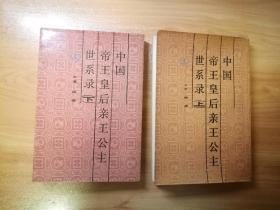 中国
帝王皇后亲王公主
世系录 下
中国
帝王皇后亲王公主
世系录 上